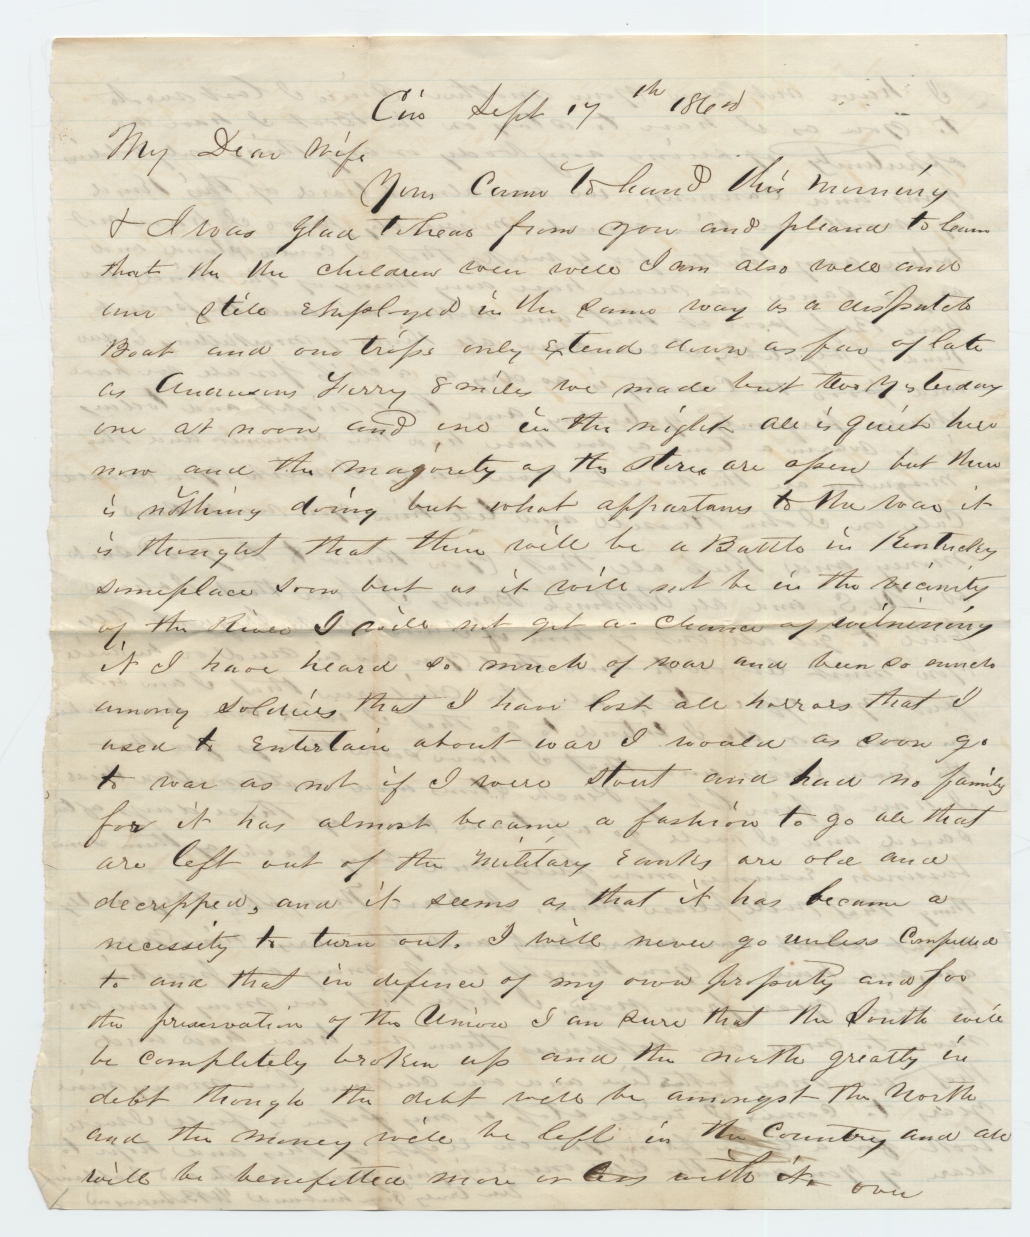 Cin Sept 17th 1862
My Dear Wife
Yours Came To hand this morning
& I was Glad to hear from you and pleased to learn
that the the children were well I am also well and
am still Employed in the same way as a dispatch
Boat and our trips only Extend down as far of late
as Andersons Ferry 8 miles we made but two Yesterday
one at noon and one in the night all is quiet here
now and the majority of the stores are open but there
is nothing doing but what appartains to the war it
is thought that there will be a Battle in Kentucky
someplace soon but as it will not be in the vicinity
of the River I will not get a chance of witnissing
it I have heard so much of war and been so much
among soldiers that I have lost all horrors that I
used to Entertain about war I would as soon go
to war as not if I were stout and had no family
for it has almost became a fashion to go all that
are left out of the Military Ranks are old and
decripped, and it seems as that it has became a
necessity to turn out. I will never go unless Compelled
to and that in defence of my own property and for
the preservation of the Union I am sure that the South will
be completely broken up and the north greatly in
debt though the debt will be amongst the North
and the money will be left in the Country and all
will be benefitted more or less with it over